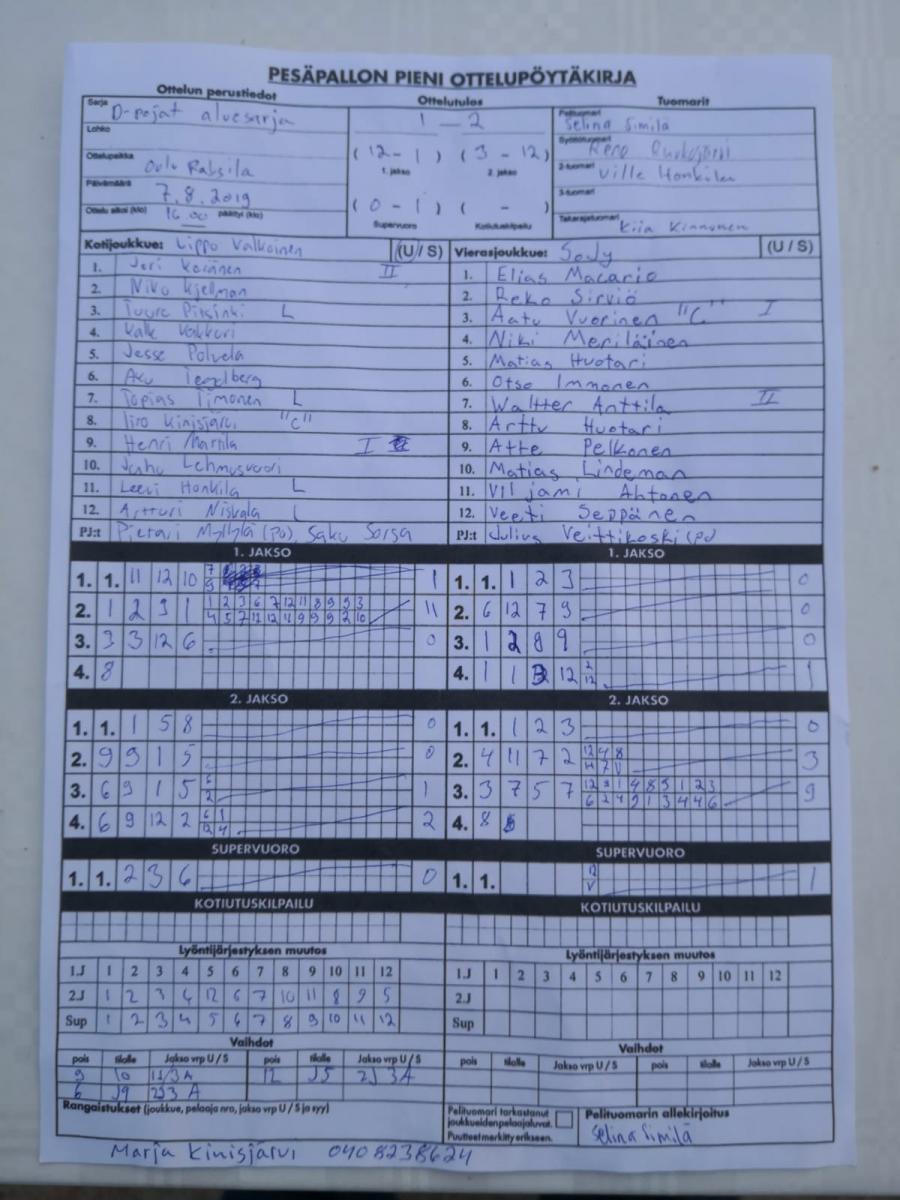 PESÄPALLON PIENI OTTELUPÖYTÄKIRJA
Ottelun perustiedot Ottelutulos Tuomarit
Sarja D-pojat aluesarja 1 - 2 Pelituomari Selina Similä
Lohko Syöttötuomari
(12 - 1) (3 - 12)
Ottelupaikka Oulu Raksila 1. jakso 2. jakso 2-tuomari Ville Honkila
Päivämäärä 7.8.2019 3-tuomari
(0 - 1) ( - )
Ottelu alkoi (klo) 16.00 päättyi (klo) Supervuoro Kotiutuskilpailu Takarajatuomari Kiia Kinnunen
Kotijoukkue: Lippo Valkoinen (U / S) Vierasjoukkue: SoJy (U / S)
1. Jori II 1. Elias Macario
2. Niko Kjellman 2. Reko Sirviö
3. Tuure L 3. Aatu Vuorinen "C" I
4. Kalle Vakkuri 4. Niki Meriläinen
5. Jesse Polvela 5. Matias Huotari
6. Aku Tegelberg 6. Otso Immonen
7. Topias Timonen L 7. Waltter Anttila II
8. Iiro Kinisjärvi "C" 8. Arttu Huotari
9. Henri Marttila I 9. Atte Pelkonen
10. Juhu Lehmusvuori 10. Matias Lindeman
11. Leevi Honkila L 11. Viljami Ahtonen
12. Artturi Niskala L 12. Veeti Seppänen
PJ:t Pietari Myllylä (po), Saku Sorsa PJ:t Julius Veittikoski (po)
1. JAKSO 1. JAKSO
1. 1. 11 12 10 1 1. 1. 1 2 3 0
2. 1 2 9 1 11 2. 6 12 7 9 0
1 2 3 6 7 12 11 8 9 9 3
4 5 7 11 12 11 9 9 9 2 10
3. 3 3 12 6 0 3. 1 2 8 9 0
4. 8 4. 1 1 3 12 2 12 1
2. JAKSO 2. JAKSO
1. 1. 1 5 8 0 1. 1. 1 2 3 0
2. 9 9 1 5 0 2. 4 11 7 2 3
12 4 8
4 7 11
3. 6 9 1 5 6 2 1 3. 3 7 5 7 9
12 3 1 4 8 5 1 2 3
6 2 4 9 1 3 4 4 6
4. 6 9 12 2 2 4. 8
6 1
12 4
SUPERVUORO SUPERVUORO
1. 1. 2 3 6 0 1. 1. 1
KOTIUTUSKILPAILU KOTIUTUSKILPAILU
Lyöntijärjestyksen muutos Lyöntijärjestyksen muutos
1.J 1 2 3 4 5 6 7 8 9 10 11 12 1.J 1 2 3 4 5 6 7 8 9 10 11 12
2.J 1 2 3 4 12 6 7 10 11 8 9 5 2.J
Sup 1 2 3 4 5 6 7 8 9 10 11 12 Sup
Vaihdot Vaihdot
pois tilalle Jakso vrp U / S pois tilalle Jakso vrp U / S pois tilalle Jakso vrp U / S pois tilalle Jakso vrp U / S
9 10 1J3A 12 J5 2J3A
6 J9 2J3A
Rangaistukset (joukkue, pelaaja nro, jakso vrp U / S ja syy) Pelituomari tarkastanut Pelituomarin allekirjoitus
joukkueiden pelaajaluvat.
Puutteet merkitty erikseen. Selina Similä
Marja Kinisjärvi 0408238624